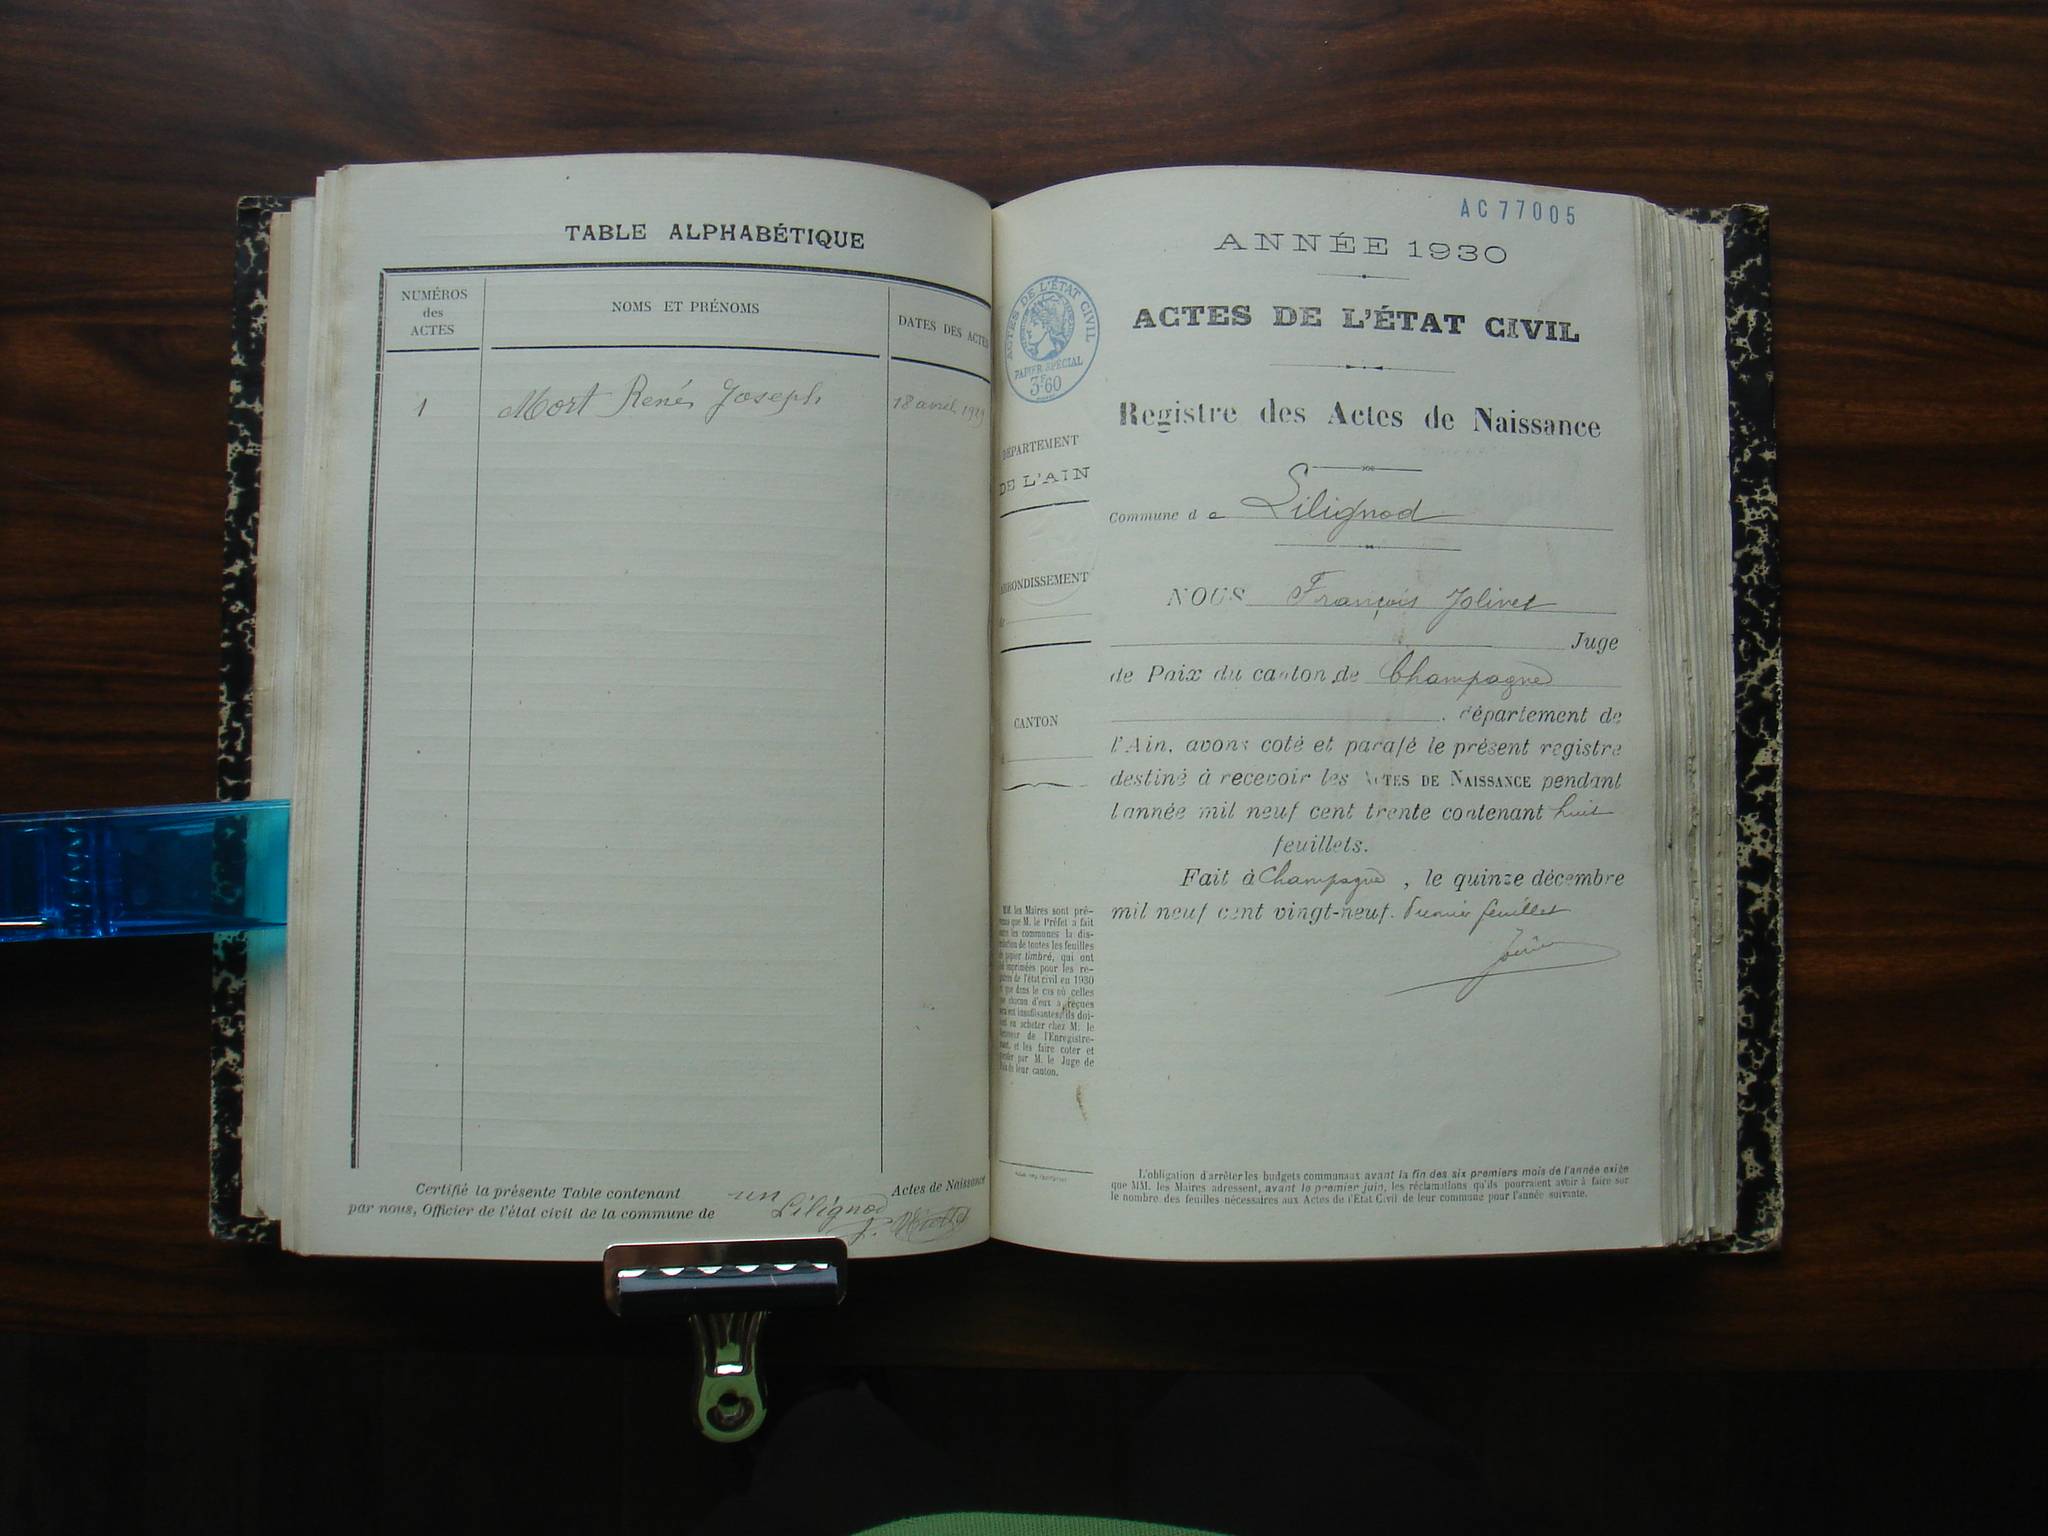 TABLE ALPHABÉTIQUE
NUMÉROS
des
ACTES
NOMS ET PRÉNOMS
DATES DES ACTES
1
Mort René Joseph
18 avril 1929
Certifié la présente Table contenant un Actes de Naissance
par nous, Officier de l'état civil de la commune de Lilignod
AC 77005
ANNÉE 1930
ACTES DE L'ÉTAT CIVIL
PAPIER SPÉCIAL
3F60
ACTES DE L'ÉTAT CIVIL
Registre des Actes de Naissance
DÉPARTEMENT
DE L'AIN
Commune de Lilignod
ARRONDISSEMENT
de
CANTON
NOUS François Jolivet
Juge
de Paix du canton de Champagne
département de
l'Ain, avons coté et parafé le présent registre
destiné à recevoir les ACTES DE NAISSANCE pendant
l'année mil neuf cent trente contenant huit
feuillets.
Fait à Champagne, le quinze décembre
mil neuf cent vingt-neuf. Premier feuillet
MM. les Maires sont pré-
que M. le Préfet a fait
les communes la dis-
de toutes les feuilles
papier timbré, qui ont
imprimées pour les re-
de l'état civil en 1930
que dans le cas où celles
chacun d'eux a reçues
insuffisantes, ils doi-
en acheter chez M. le
de l'Enregistre-
et les faire coter et
par M. le Juge de
leur canton.
L'obligation d'arrêter les budgets communaux avant la fin des six premiers mois de l'année exige
que MM. les Maires adressent, avant le premier juin, les réclamations qu'ils pourraient avoir à faire sur
le nombre des feuilles nécessaires aux Actes de l'État Civil de leur commune pour l'année suivante.